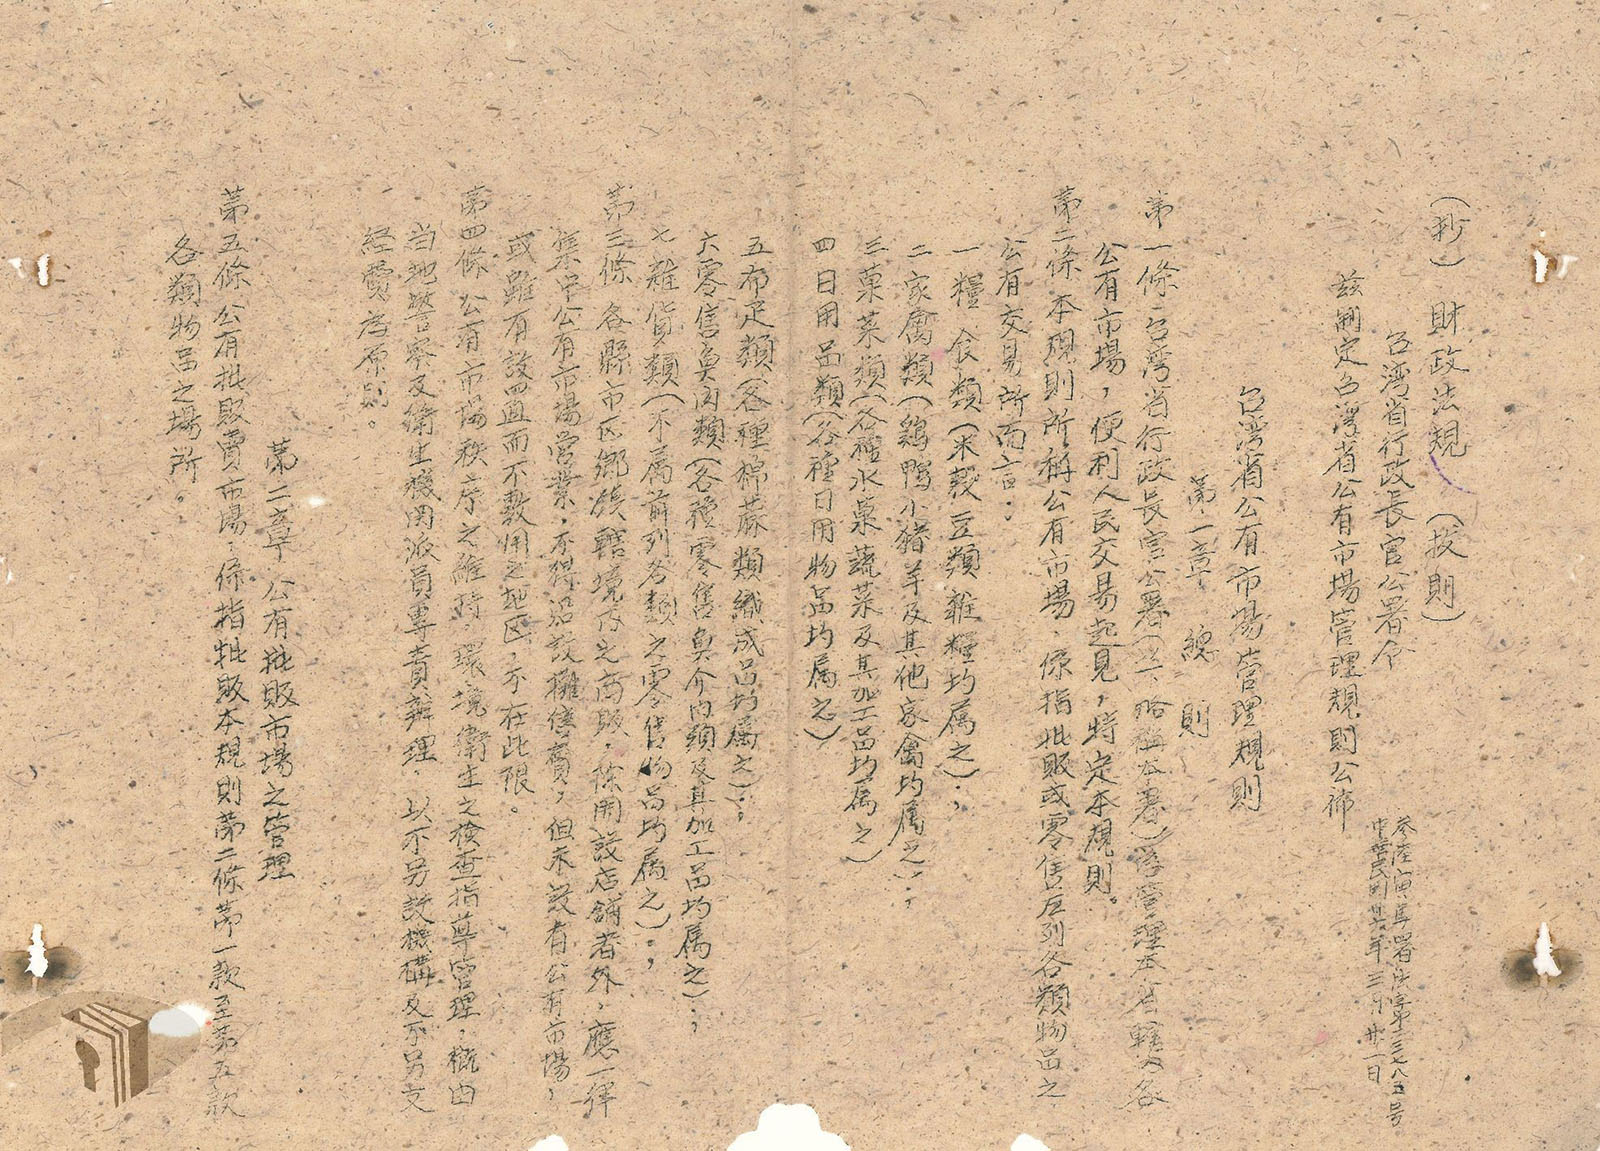 (抄) 財政法規 (技則)
台湾省行政長官公署令
参陸寅馬署法字第二三七八五号
中華民国卅六年三月廿一日
茲制定台湾省公有市場管理規則公佈
台湾省公有市場管理規則
第一章 總 則
第一條 台湾省行政長官公署(以下略稱本署)為管理本省轄内各
公有市場,便利人民交易起見,特定本規則。
第二條 本規則所稱公有市場,係指批販或零售左列各類物品之
公有交易所而言:
一 糧食類(米穀豆類雜糧均属之);
二 家禽類(鷄鴨小猪羊及其他家禽均属之);
三 菓菜類(各種水菓蔬菜及其加工品均属之)
四 日用品類(各種日用物品均属之)
五 布疋類(各種棉蔴類織成品均属之);
六 零售魚肉類(各種零售魚介肉類及其加工品均属之);
七 雜貨類(不属前列各類之零售物品均属之);
第三條 各縣市区鄉鎮轄境内之商販,除開設店舖者外,應一律
集中公有市場営業,不得沿設攤售賣,但未設有公有市場,
或雖有設置而不敷用之地区,不在此限。
第四條 公有市場秩序之維持,環境衛生之検查指導管理,概由
当地警察及衛生機関派員專責辦理,以不另設機構及不另支
経費為原則。
第二章 公有批販市場之管理
第五條 公有批販賣市場,係指批販本規則第二條第一款至第五款
各類物品之場所。